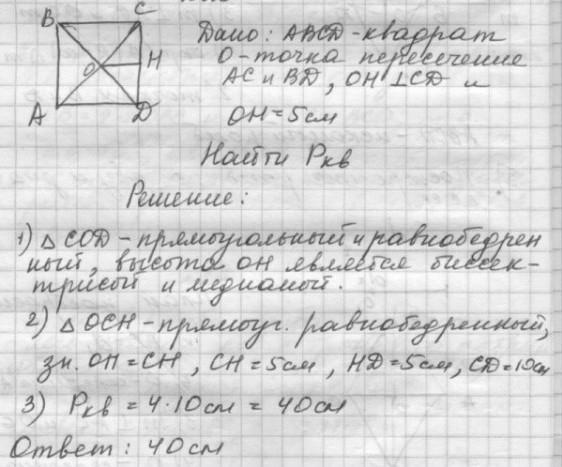 B C
Дано: ABCD - квадрат
O - точка пересечение
AC и BD, OH ⊥ CD и
O H
A D
OH = 5 см
Найти Pкв
Решение:
1) △ COD - прямоугольный и равнобедрен
ный, высота OH является биссек-
трисой и медианой.
2) △ OCH - прямоуг. равнобедренный,
зн. OH = CH, CH = 5 см, HD = 5 см, CD = 10 см
3) Pкв = 4 · 10 см = 40 см
Ответ: 40 см